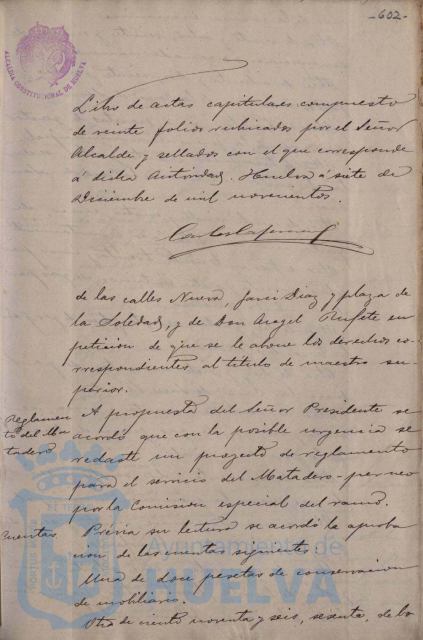 -602-
ALCALDIA CONSTITUCIONAL DE HUELVA
Libro de actas capitulares compuesto
de veinte folios rubricados por el Señor
Alcalde y sellados con el que corresponde
a dicha Autoridad. Huelva á siete de
Diciembre de mil novecientos.
de las calles Nueva, Javi Diaz y plaza de
la Soledad, y de Don Angel Rufete en
peticion de que se le abone los derechos co-
rrespondientes al titulo de maestro su-
perior.
Reglamen
to del Ma
tadero
A propuesta del Señor Presidente se
acordó que con la posible urgencia se
redacte un proyecto de reglamento
para el servicio del Matadero
por la Comision especial del ramo.
Cuentas
Previa su lectura se acordó la aproba
cion de las cuentas siguientes.
Una de doce pesetas de conservacion
de mobiliario.
Otra de ciento noventa y seis, sesenta, de lo
Ayuntamiento de
HUELVA